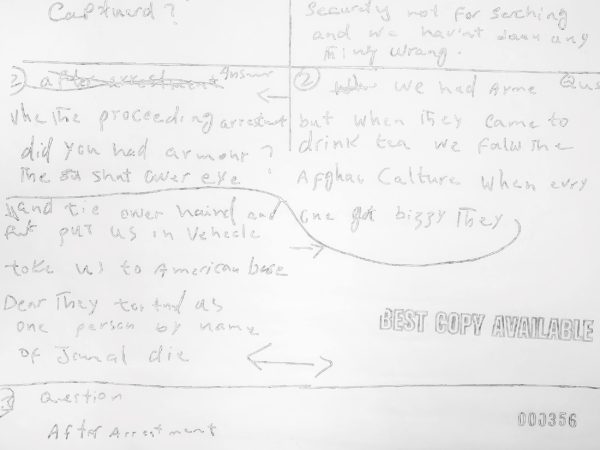 Captuerd ?
Security not for serching
and we havint daun any
Thing wrang.
2) after arrestment Answer
whe The proceeding arrestmet
did you had armour ?
The so shut ower eye
Hand tie ower haind and
put us in Vehecle
toke us to American base
Dear They tortud as
one person by name
of Jamal die
(2) we had Arme Qus
but when They came to
drink tea we falw The
Afghan Calture when evry
one got bizzy They
BEST COPY AVAILABLE
3 Question
After Arrestment
000356